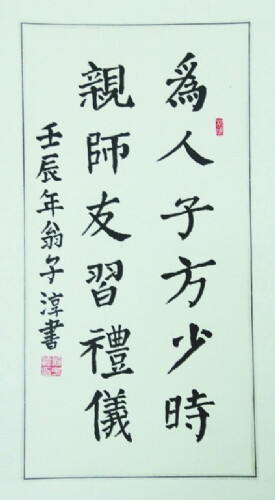 為人子方少時
親師友習禮儀
壬辰年翁子淳書